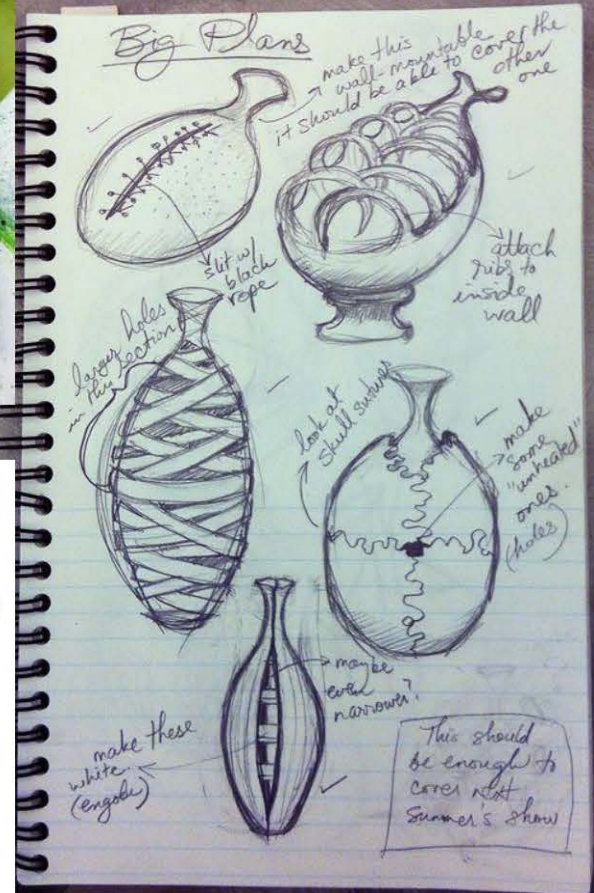 Big Plans
make this
wall-mountable
it should be able to cover the
other
one
slit w/
black
rope
attach
ribs to
inside
wall
larger holes
in this section
look at
skull sutures
make
some
"unhealed"
ones.
(holes)
maybe
even
narrower?
make these
white
(engobe)
This should
be enough to
cover next
Summer's show